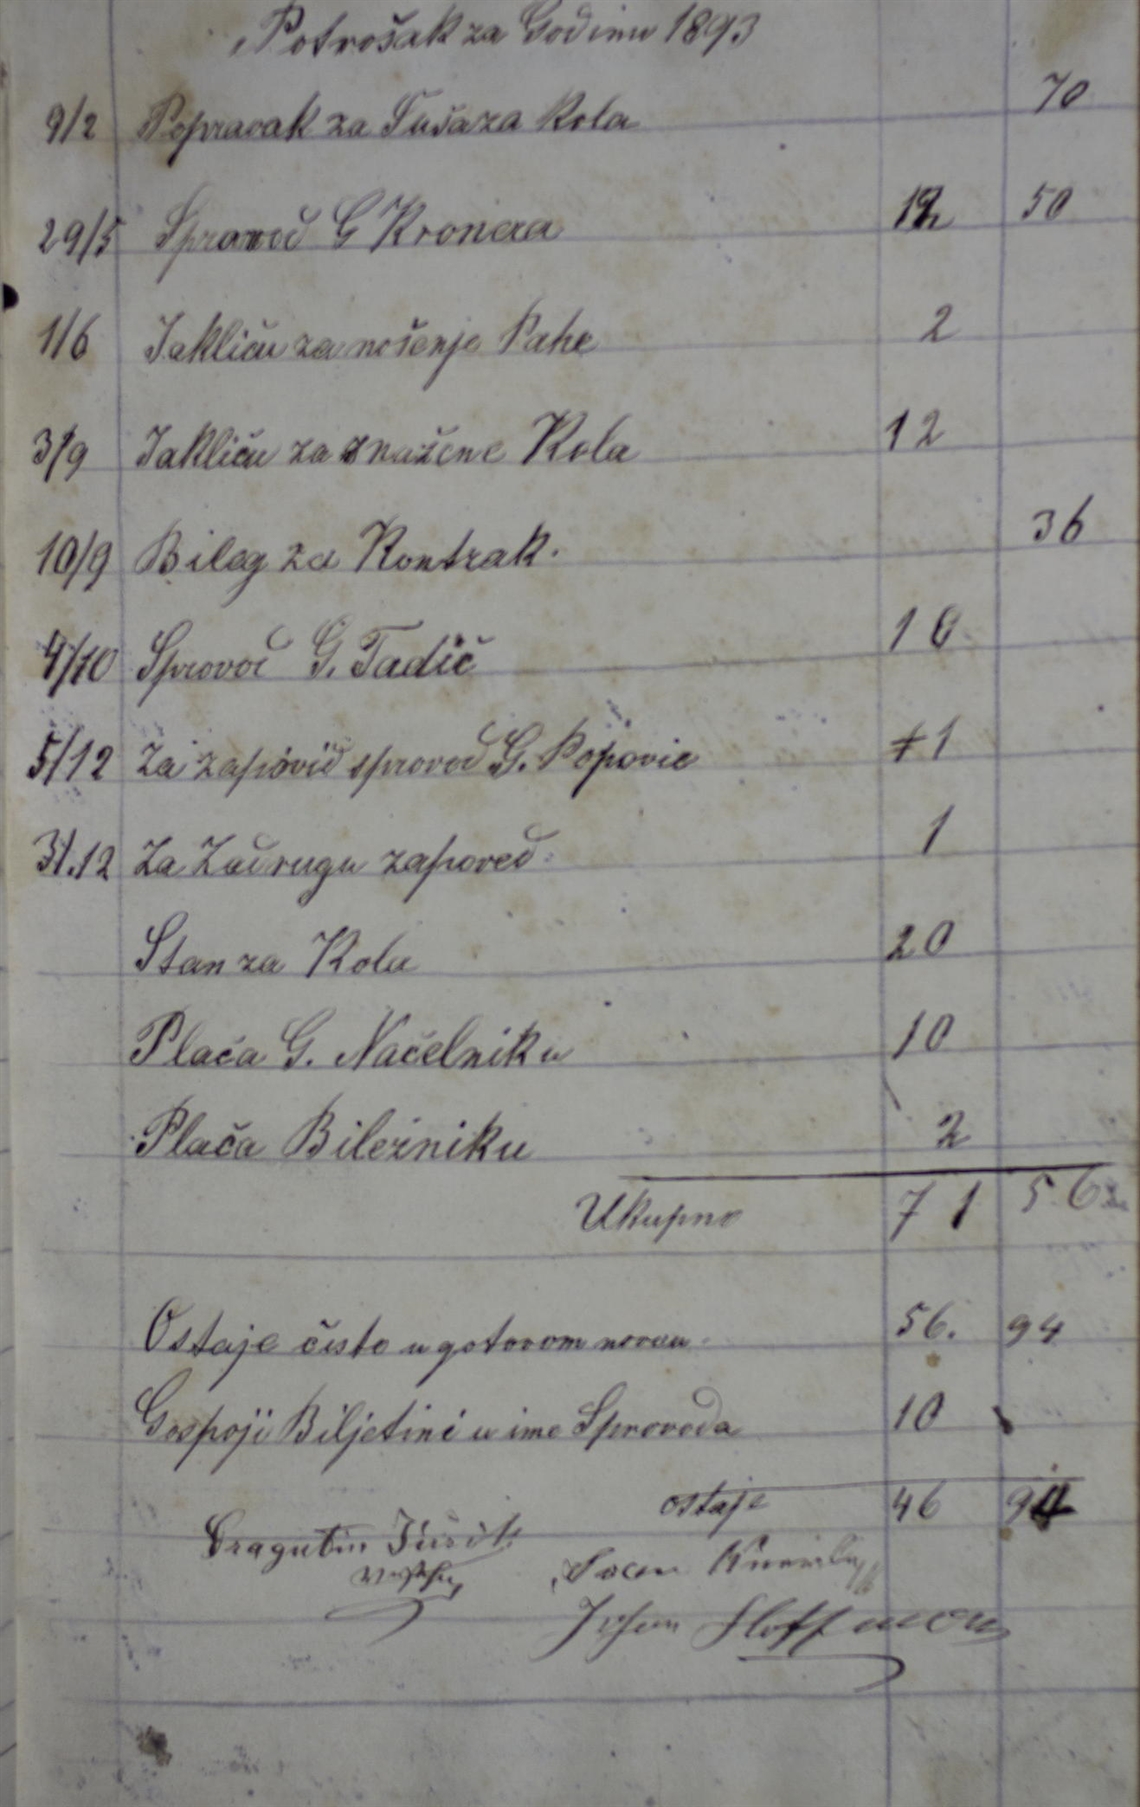 Potrošak za Godinu 1893
9/2 Popravak za Tušaza Kola 70
29/5 Spravod G Kronera 12 50
1/6 Jakliču za nošenje Pahe 2
3/9 Jakliču za snažene Kola 12
10/9 Bileg za Kontrak. 36
4/10 Sprovod G. Tadič 10
5/12 Za zapovid sprovod G. Popovic 1
31.12 Za Zadrugu zapoved. 1
Stan za Kola 20
Plaća G. Načelniku 10
Plača Biležniku 2
Ukupno 71 56
Ostaje čisto u gotovom novcu 56. 94
Gospoji Biljetini u ime Sprovoda 10
ostaje 46 94
Dragutin
Johan Hoffman